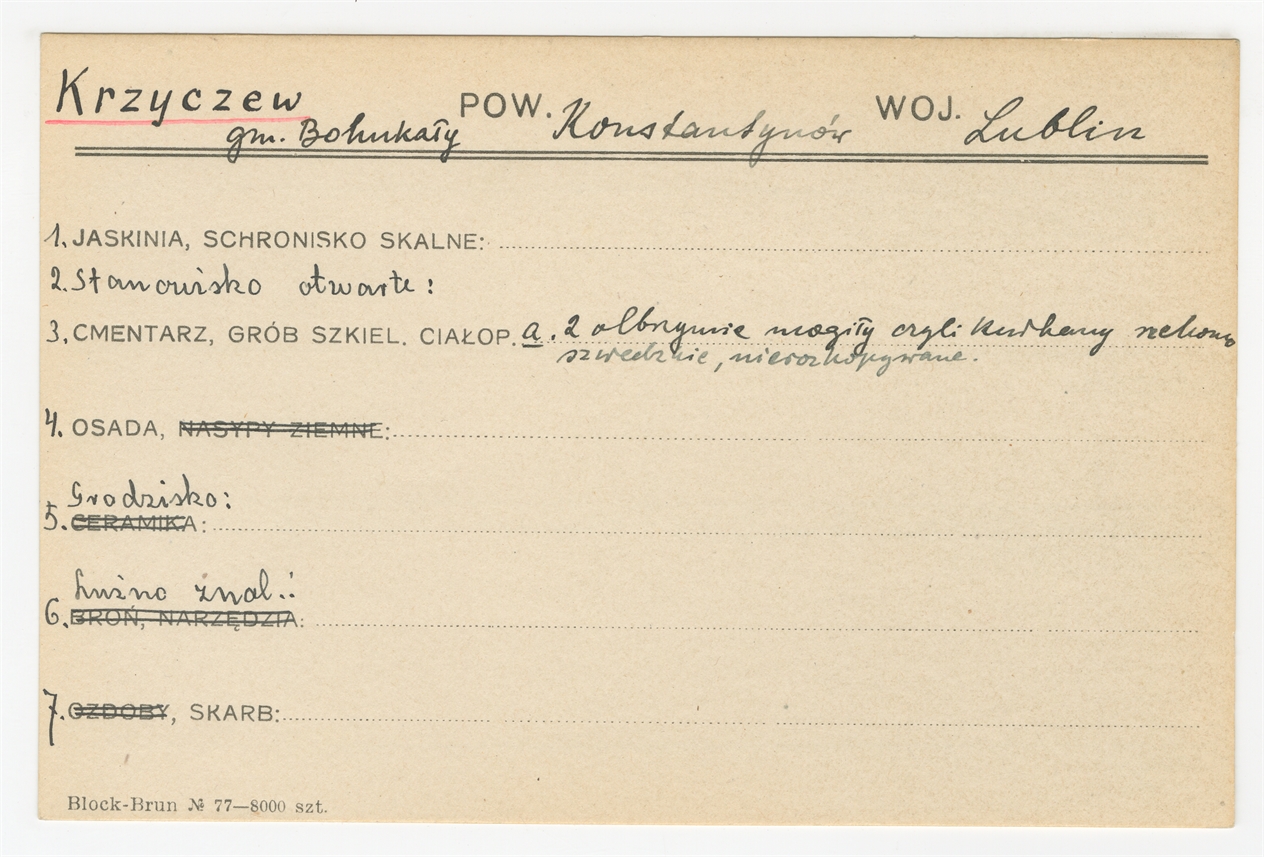 Krzyczew POW. Konstantynów WOJ. Lublin
gm. Bohukały
1. JASKINIA, SCHRONISKO SKALNE:
2. Stanowisko otwarte:
3. CMENTARZ, GRÓB SZKIEL. CIAŁOP. a. 2 olbrzymie mogiły czyli kurhany rzekomo
szwedzkie, nierozkopywane.
4. OSADA, NASYPY ZIEMNE:
Grodzisko:
5. CERAMIKA:
Luźno znal.:
6. BROŃ, NARZĘDZIA:
7. OZDOBY, SKARB:
Block-Brun № 77—8000 szt.